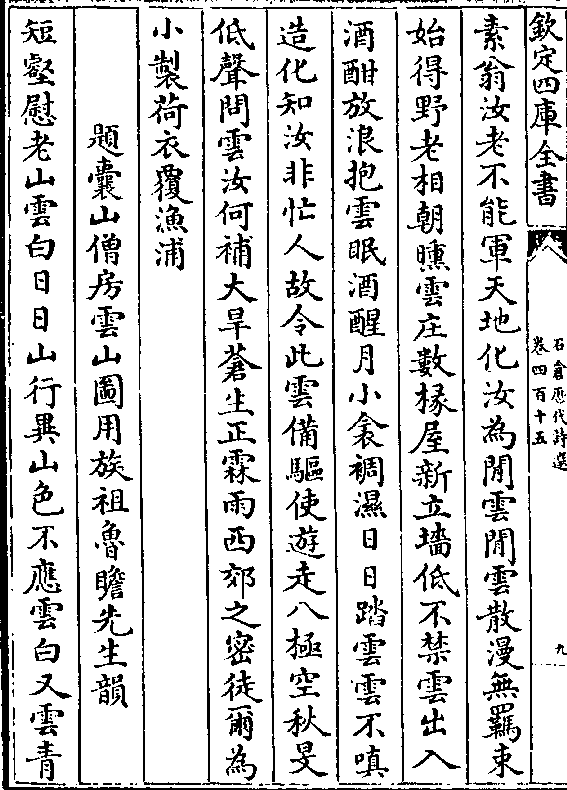 欽定四庫全書
石倉歷代詩選
卷四百十五
九
素翁汝老不能軍天地化汝為閒雲閒雲散漫無羈束
始得野老相朝曛雲庄數椽屋新立墻低不禁雲出入
酒酣放浪抱雲眠酒醒月小衾裯濕日日踏雲雲不嗔
造化知汝非忙人故令此雲備驅使遊走八極空秋旻
低聲問雲汝何補大旱蒼生正霖雨西郊之密徒爾為
小製荷衣覆漁浦
題囊山僧房雲山圖用族祖魯瞻先生韻
短壑慰老山雲白日日山行異山色不應雲白又雲青